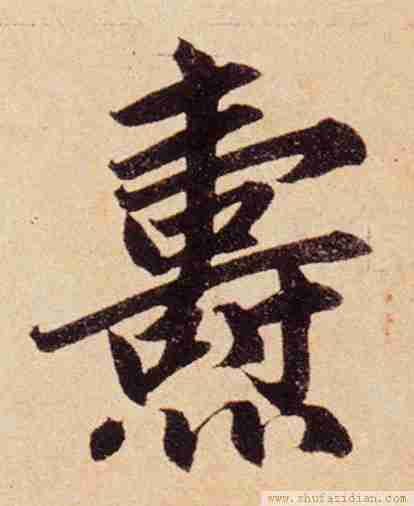 燾
www.shufazidian.com